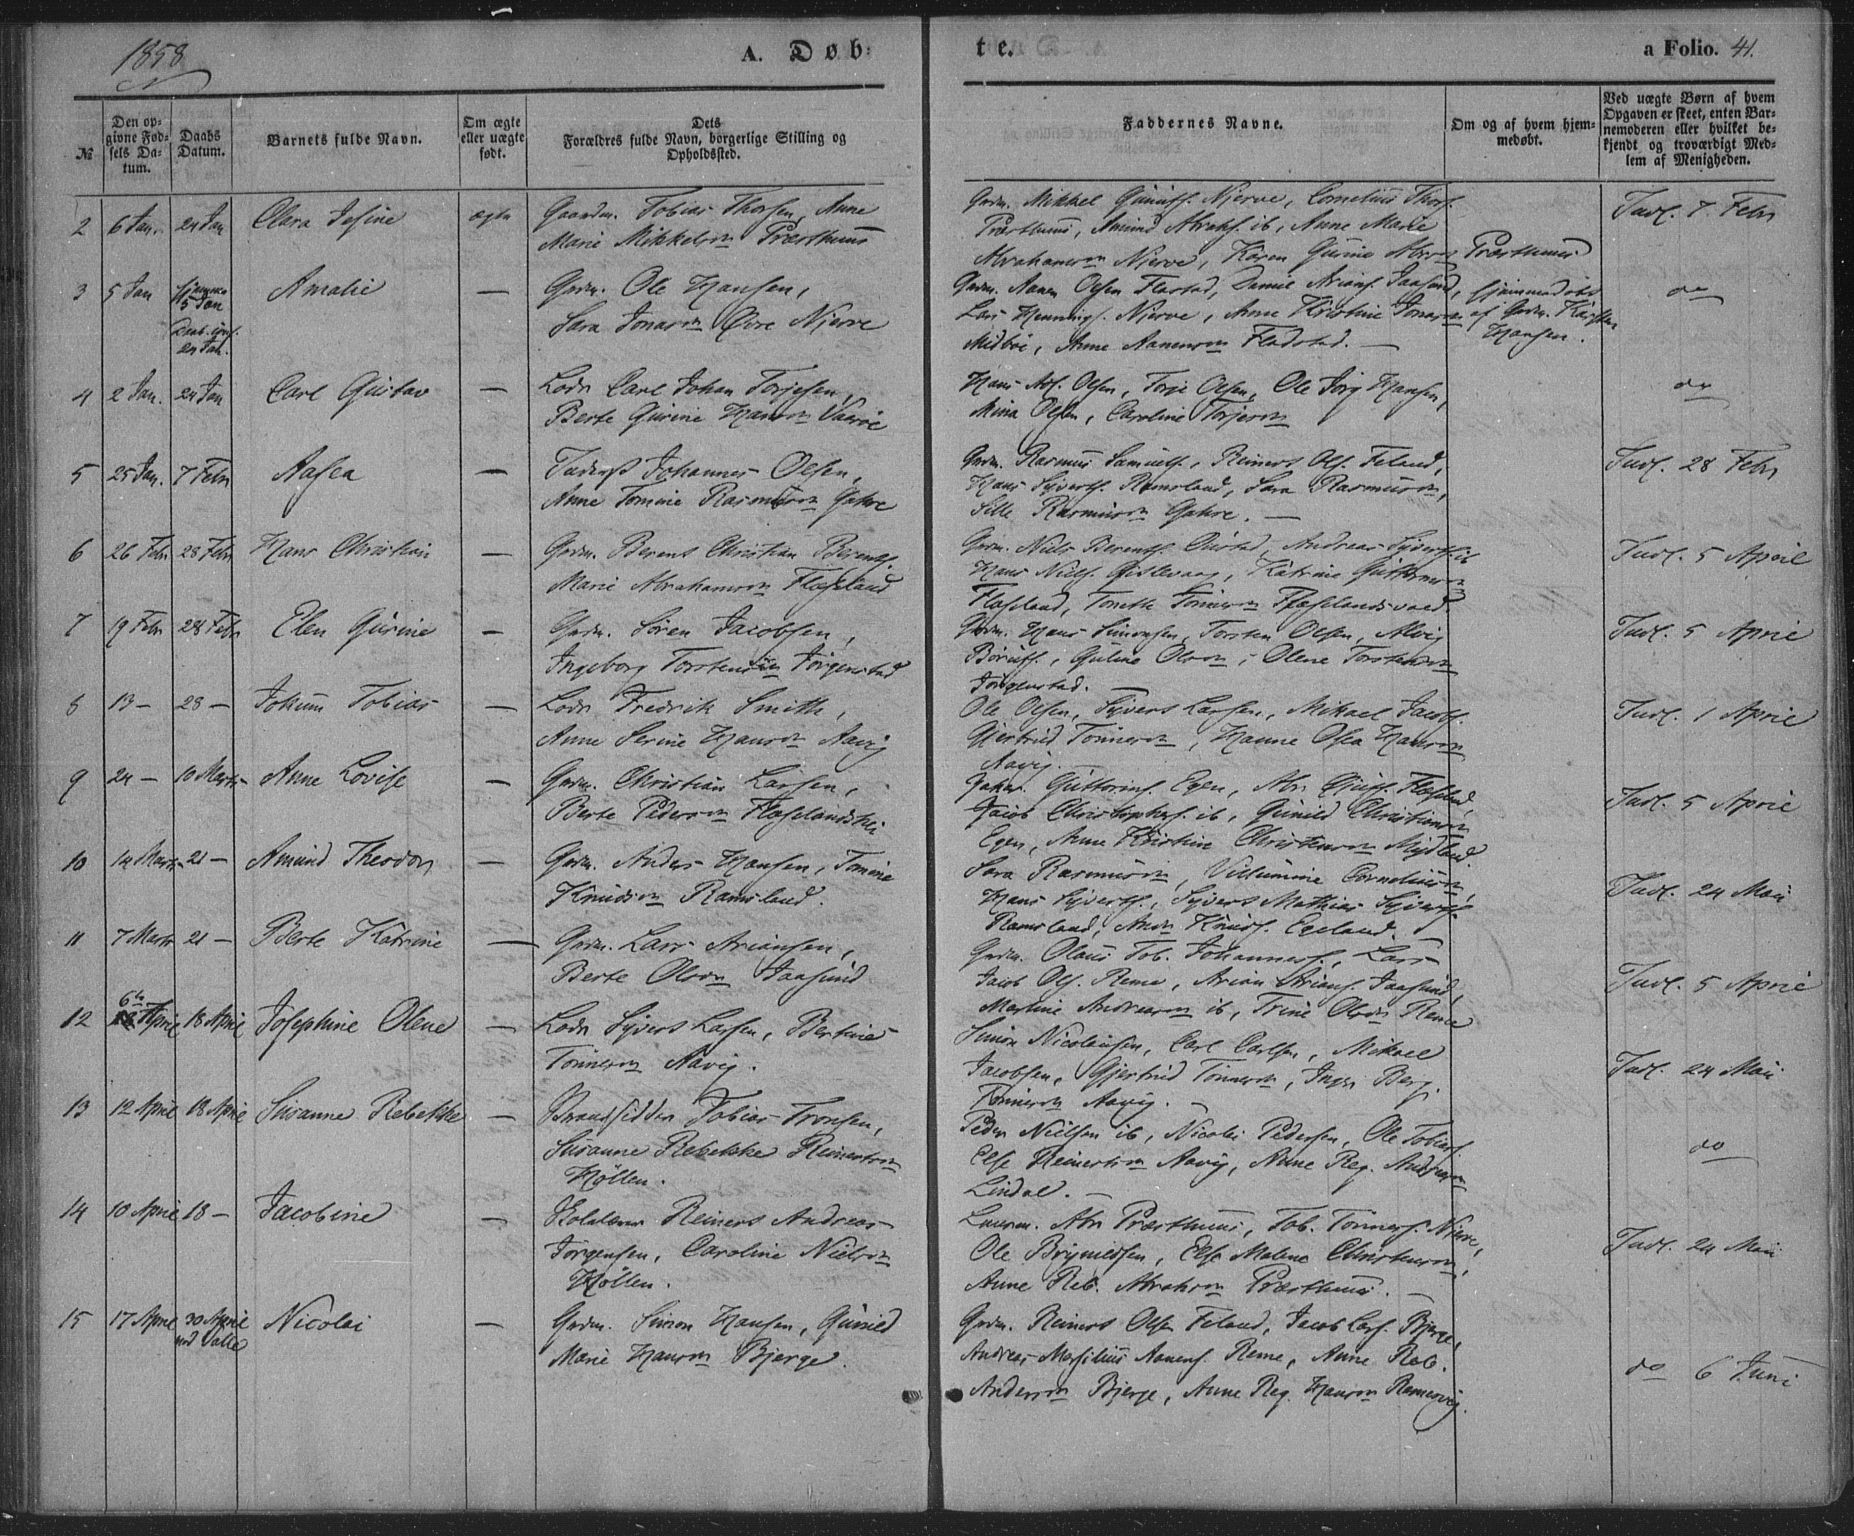 1858
A. Døb-
te.
a Folio. 41.
№
Den op-
givne Fød-
sels Da-
tum.
Daabs
Datum.
Barnets fulde Navn.
Om ægte
eller uægte
født.
Dets
Forældres fulde Navn, borgerlige Stilling og
Opholdssted.
Faddernes Navne.
Om og af hvem hjem-
medøbt.
Ved uægte Børn af hvem
Opgaven er skeet, enten Bar-
nemoderen eller hvilket be-
kjendt og troværdigt Med-
lem af Menigheden.
2 6 Jan. 24 Jan Clara Josine ægte Gaardm. Tobias Thorsen, Anne
Marie Mikkelsn Præsthuus
Grdm. Mikkel Njerve, Cornelius Thors.
Præsthuus, Amund Abrahs. ib, Anne Marie
Abrahamsn Njerve, Karen Gurine Abrs Præsthuus
Indl. 7 Febr
3 5 Jan Hjemme
5 Jan
24 Jan.
Amalie — Grdm. Ole Hansen,
Sara Jonasn Øvre Njerve
Grdm. Aanen Olsen Flastad, Daniel Arians. Jaasund,
Lars Hennings. Njerve, Anne Kristine Jonasn
Midboe, Anne Aanensn Fladstad. —
Hjemmedøbt
af Grdm. Karsten
Hansen.
do
4 2 Jan. 24 Jan Carl Gustav — Lods Carl Johan Torjesen,
Berte Gurine Hansn Vaaröe
Hans Ols. Olsen, Torje Olsen, Ole Jörg Hansen,
Mina Olsen, Caroline Torjesn
do
5 25 Jan. 7 Febr Aasea — Inderst Johannes Olsen,
Anne Tomine Rasmusn Gahre
Grdm. Rasmus Samuels., Reinert Ols. Feland,
Hans Syverts. Ramsland, Sara Rasmusn,
Sille Rasmusn Gahre. —
Indl. 28 Febr
6 26 Febr. 28 Febr Hans Christian — Grdm. Berent Christian Berents.
Marie Abrahamsn Flaseland
Grdm. Niels Berents. Andreas Syverts. ib
Hans Niels. Gislevaag, Katrine Guttormsn
Flaseland, Tomette Tönnesn Flaselandsvaed.
Indl. 5 April
7 19 Febr 28 Febr Elen Gurine — Grdm. Sören Jacobsen,
Ingeborg Torstensn Jörgenstad
Grdm. Hans Simonsen, Torsten Olsen, Alvig
Böruls., Guline Olsn, Olene Torstensn
Jörgenstad.
Indl. 5 April
8 13 — 28 — Jokum Tobias — Lods Fredrik Smith,
Anne Serine Hansn Aavig
Ole Olsen, Syvert Larsen, Mikael Jacobs.
Gjertrud Tönnesn, Hanne Olea Hansn
Aavig.
Indl. 1 April
9 24 — 10 Marts Anne Lovise — Grdm. Christian Larsen,
Berte Pedersn Flaselandslid
Guttorms. Egen, Abr. Flaseland,
Jacob Christophers. ib, Gunild Christiansn
Egen, Anne Kristine Christensn Mydland.
Indl. 5 April
10 14 Marts 21 — Amund Theodor — Grdm. Anders Hansen, Tomine
Knudsn Ramsland.
Sara Rasmusn, Villumine Corneliusn,
Hans Syverts., Syvert Mathias Syverts.
Ramsland, Andr. Knuds. Egeland.
Indl. 24 Mai
11 7 Marts 21 — Berte Katrine — Grdm. Lars Ariansen,
Berte Olsdr Jaasund
Grdm. Olaus Tob. Johannes., Lars
Jacob Ols. Reme, Arian Arians. Jaasund,
Martine Andreasn ib, Trine Olsdr Reme
Indl. 5 April
12 6te April 18 April Josephine Olene — Lods Syvert Larsen, Bertine
Tönnesn Aavig.
Simon Nicolaisen, Carl Carlsen, Mikael
Jacobsen, Gjertrud Tönnesn, Inger Berg.
Tönnesn Aavig. —
Indl. 24 Mai
13 12 April 18 April Susanne Rebekke — Strandsidder Tobias Tronsen,
Susanne Rebekke Reinertsn
Höllen.
Peder Nielsen ib, Nicolai Pedersen, Ole Tobias.
Else Reinertsn Aavig, Anne Reg. Andreasn
Lindal. —
do
14 10 April 18 — Jacobine — Skolelærer Reinert Andreas
Jörgensen, Caroline Nielsn
Höllen.
Laurm. Abr. Præsthuus, Tob. Tönness. Njerve,
Ole Brynildsen, Else Malene Christensn,
Anne Reb. Abrahsn Præsthuus. —
Indl. 24 Mai
15 17 April 30 April
ved Valle
Nicolai — Grdm. Simon Hansen, Gunild
Marie Hansn Bjerge.
Grdm. Reinert Olsen Feland, Jacob Lars. Bjerge,
Andreas Marsilius Aanens. Reme, Anne Reb.
Andersn Bjerge, Anne Reg. Hansn Remesvig.
do 6 Juni